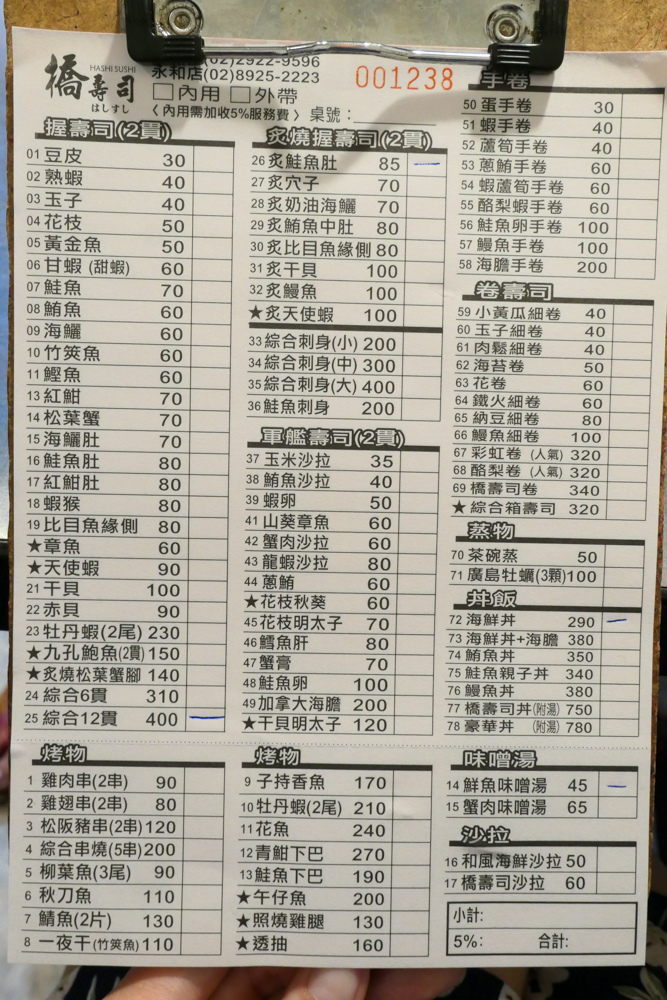 橋壽司
HASHI SUSHI
はしすし
(02)2922-9596
永和店(02)8925-2223
001238
□內用 □外帶
〈內用需加收5%服務費〉 桌號:
握壽司(2貫)
01 豆皮 30
02 熟蝦 40
03 玉子 40
04 花枝 50
05 黃金魚 50
06 甘蝦 (甜蝦) 60
07 鮭魚 70
08 鮪魚 60
09 海鱺 60
10 竹筴魚 60
11 鰹魚 60
13 紅魽 70
14 松葉蟹 70
15 海鱺肚 70
16 鮭魚肚 80
17 紅魽肚 80
18 蝦猴 80
19 比目魚緣側 80
★章魚 60
★天使蝦 90
21 干貝 100
22 赤貝 90
23 牡丹蝦(2尾) 230
★九孔鮑魚(2貫) 150
★炙燒松葉蟹腳 140
24 綜合6貫 310
25 綜合12貫 400
炙燒握壽司(2貫)
26 炙鮭魚肚 85
27 炙穴子 70
28 炙奶油海鱺 70
29 炙鮪魚中肚 80
30 炙比目魚緣側 80
31 炙干貝 100
32 炙鰻魚 100
★炙天使蝦 100
33 綜合刺身(小) 200
34 綜合刺身(中) 300
35 綜合刺身(大) 400
36 鮭魚刺身 200
軍艦壽司(2貫)
37 玉米沙拉 35
38 鮪魚沙拉 40
39 蝦卵 50
41 山葵章魚 60
42 蟹肉沙拉 60
43 龍蝦沙拉 80
44 蔥鮪 60
★花枝秋葵 60
45 花枝明太子 70
46 鱈魚肝 80
47 蟹膏 70
48 鮭魚卵 100
49 加拿大海膽 200
★干貝明太子 120
手卷
50 蛋手卷 30
51 蝦手卷 40
52 蘆筍手卷 40
53 蔥鮪手卷 60
54 蝦蘆筍手卷 60
55 酪梨蝦手卷 60
56 鮭魚卵手卷 100
57 鰻魚手卷 100
58 海膽手卷 200
卷壽司
59 小黃瓜細卷 40
60 玉子細卷 40
61 肉鬆細卷 40
62 海苔卷 50
63 花卷 60
64 鐵火細卷 60
65 納豆細卷 80
66 鰻魚細卷 100
67 彩虹卷 (人氣) 320
68 酪梨卷 (人氣) 320
69 橋壽司卷 340
★綜合箱壽司 320
蒸物
70 茶碗蒸 50
71 廣島牡蠣(3顆) 100
丼飯
72 海鮮丼 290
73 海鮮丼+海膽 380
74 鮪魚丼 350
75 鮭魚親子丼 340
76 鰻魚丼 380
77 橋壽司丼(附湯) 750
78 豪華丼 (附湯) 780
烤物
1 雞肉串(2串) 90
2 雞翅串(2串) 80
3 松阪豬串(2串) 120
4 綜合串燒(5串) 200
5 柳葉魚(3尾) 90
6 秋刀魚 110
7 鯖魚(2片) 130
8 一夜干(竹筴魚) 110
烤物
9 子持香魚 170
10 牡丹蝦(2尾) 210
11 花魚 240
12 青魽下巴 270
13 鮭魚下巴 190
★午仔魚 200
★照燒雞腿 130
★透抽 160
味噌湯
14 鮮魚味噌湯 45
15 蟹肉味噌湯 65
沙拉
16 和風海鮮沙拉 50
17 橋壽司沙拉 60
小計:
5%: 合計: